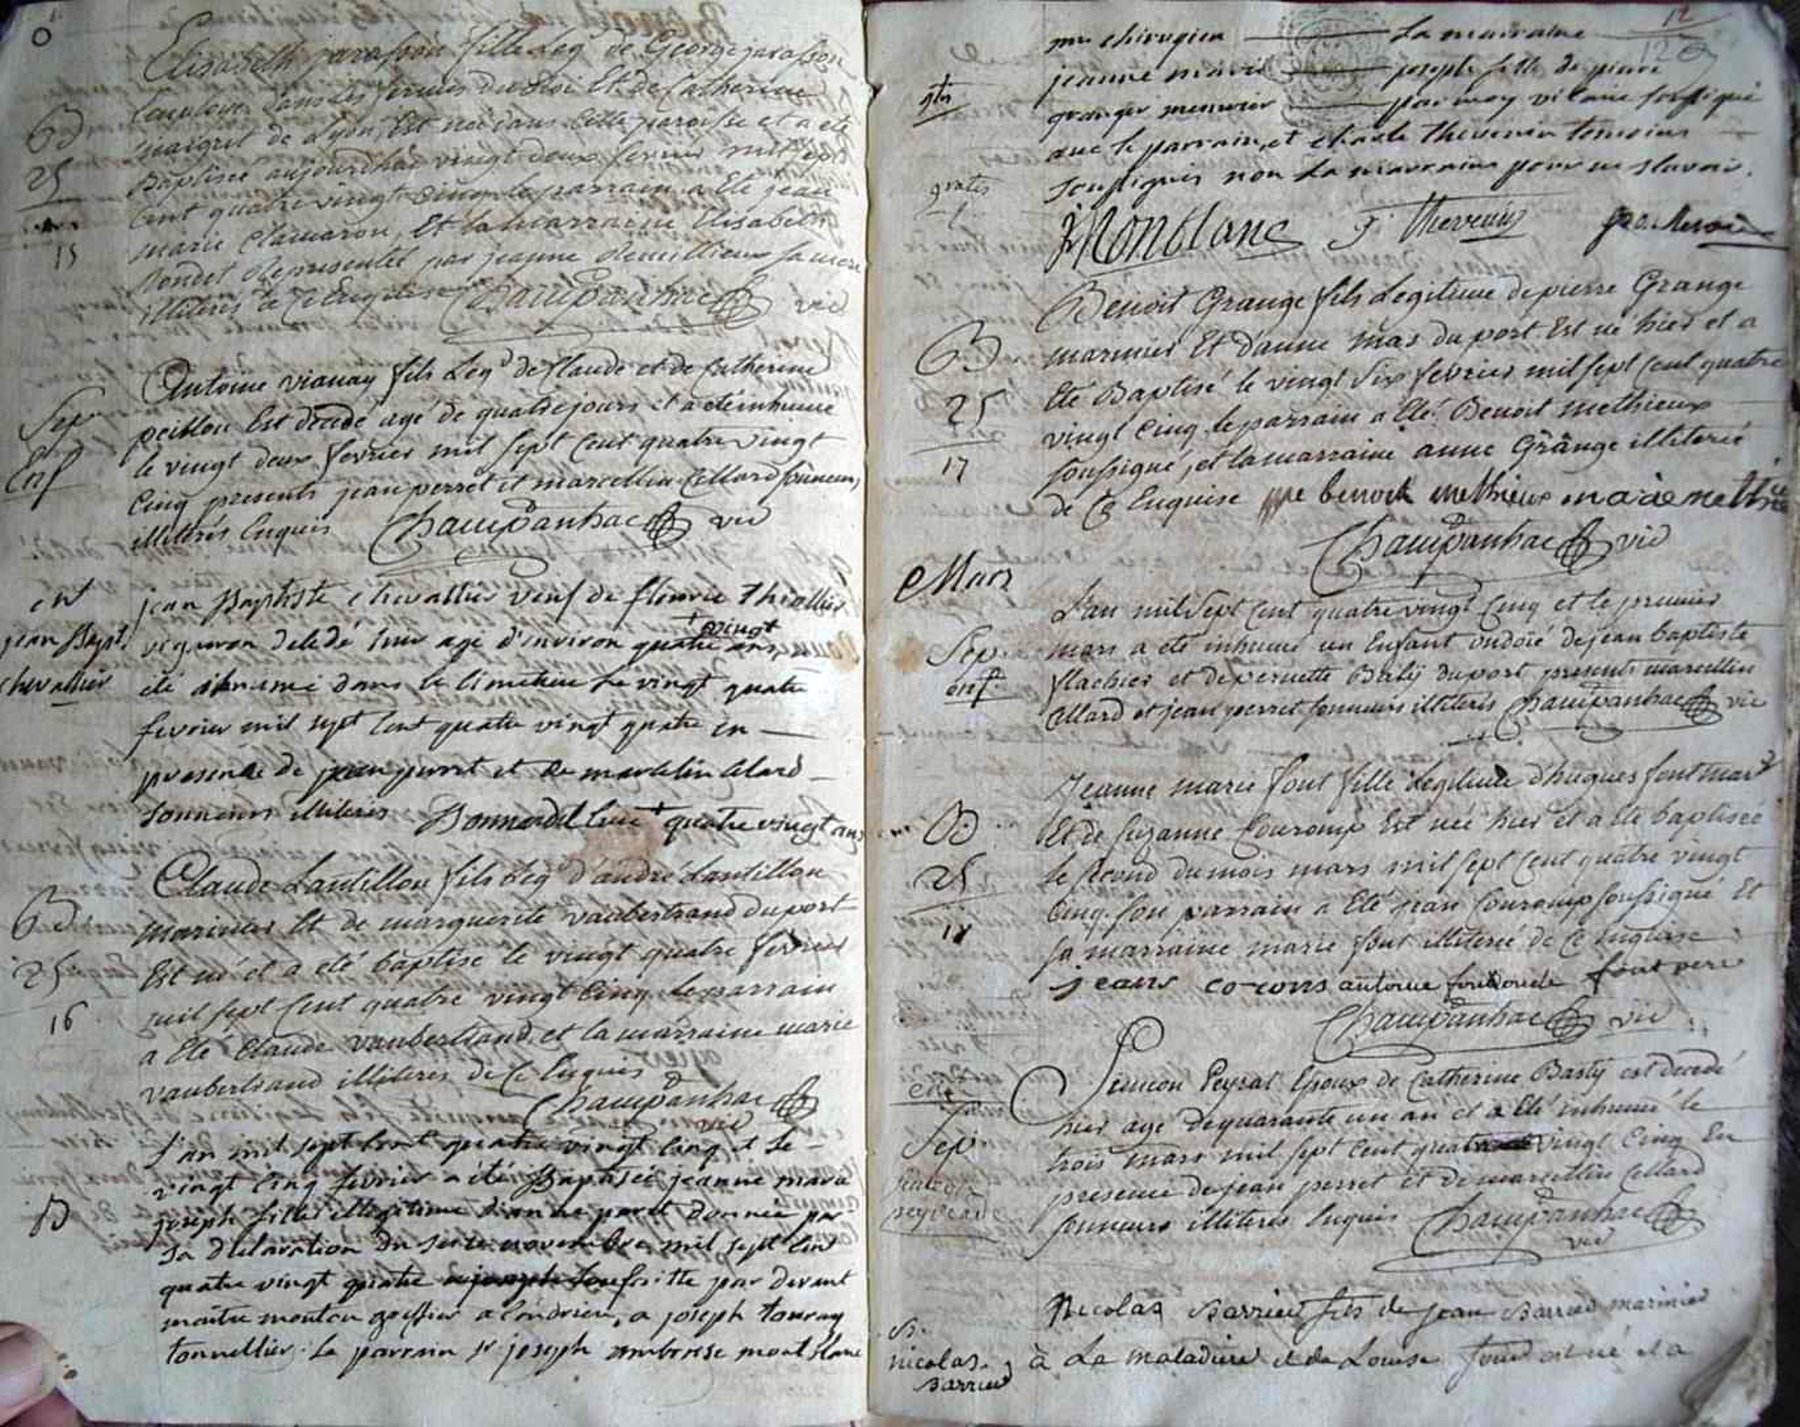 Elisabeth parasson fille Leg de George parasson
Employé dans les fermes du Roi Et de Catherine
maigret de Lyon, Est née dans Cette paroisse et a eté
Baptisée aujourdhui vingt deux fevrier mil sept
Cent quatre vingt Cinq le parrain a Eté jean
marie Clamaron, Et la marraine Elisabeth
representée par jeanne sa mere
illiterés de Ce Enquis Champanhac vic
B
25
15
Antoine vianay fils Leg de Claude et de Catherine
peillon Est decedé agé de quatre jours et a eté inhumé
le vingt deux fevrier mil sept Cent quatre vingt
Cinq presents jean perret et marcellin Cellard sonneurs
illiterés Enquis Champanhac vic
Sep
Enf
jean Baptiste chevallier veuf de fleurie Thiollier
vigneron decedé hier age d'environ quatre vingt ans, a
eté inhumé dans le Cimetiere le vingt quatre
fevrier mil sept Cent quatre vingt quatre en
presence de jean perret et de marcelin Celard
sonneurs illiterés Bonnardel Curé + quatre vingt ans
jean Bapt
chevallier
Claude Lantillon fils Leg d'andré Lantillon
marinier Et de marguerite vaubertrand du port
Est né et a eté baptisé le vingt quatre fevrier
mil sept Cent quatre vingt Cinq le parrain
a Eté Claude vaubertrand et la marraine marie
vaubertrand illiteres de Ce Enquis
Champanhac
vic
B
25
16
L'an mil sept Cent quatre vingt Cinq et le
vingt Cinq fevrier a été Baptisée jeanne marie
joseph fille illegitime donnée par
sa declaration du seize novembre mil sept Cent
quatre vingt quatre faitte par devant
maître mouton greffier a Condrieu, a joseph
tonnellier. Le parrain Sr joseph ambroise montblanc
B
12
mtre chirugien La marraine
jeanne marie joseph fille de pierre
granger menuisier par moy vicaire soussigné
avec le parrain, et thevenin temoins
soussignés non La marraine pour ne sçavoir.
gratis
J Montblanc J. Thevenin
Benoit Grange fils Legitime de pierre Grange
marinier Et d'anne mas du port Est né hier et a
Eté Baptisé le vingt six fevrier mil sept Cent quatre
vingt Cinq le parrain a Eté Benoit methieux
soussigné, et la marraine anne Grange illiterée
de Ce Enquise benoit methieux
Champanhac vic
B
25
17
Mars
L'an mil sept Cent quatre vingt Cinq et le premier
mars a eté inhumé un Enfant ondoié de jean baptiste
flachier et de pernette Baly du port presents marcellin
Cellard et jean perret sonneurs illiterés Champanhac vic
Sep
enf.
Jeanne marie font fille Legitime d'hugues font mar
Et de suzanne Couromp Est née hier et a eté baptisée
le second du mois mars mil sept Cent quatre vingt
Cinq. son parrain a Eté jean Couromp soussigné Et
sa marraine marie font illiterée de Ce Enquise
jean co-rons antoine font pere
Champanhac vic
B
25
18
Simeon Peyrat Epoux de Catherine Basty est decedé
hier age de quarante un an et a Eté inhumé le
trois mars mil sept Cent quatre vingt Cinq En
presence de jean perret et de marcellin Cellard
sonneurs illiteres Enquis Champanhac
vic
Sep
Nicolas Barrier fils de jean Barrier marinier
à La maladiere et de Louise font est né et a
B.
nicolas
Barrier